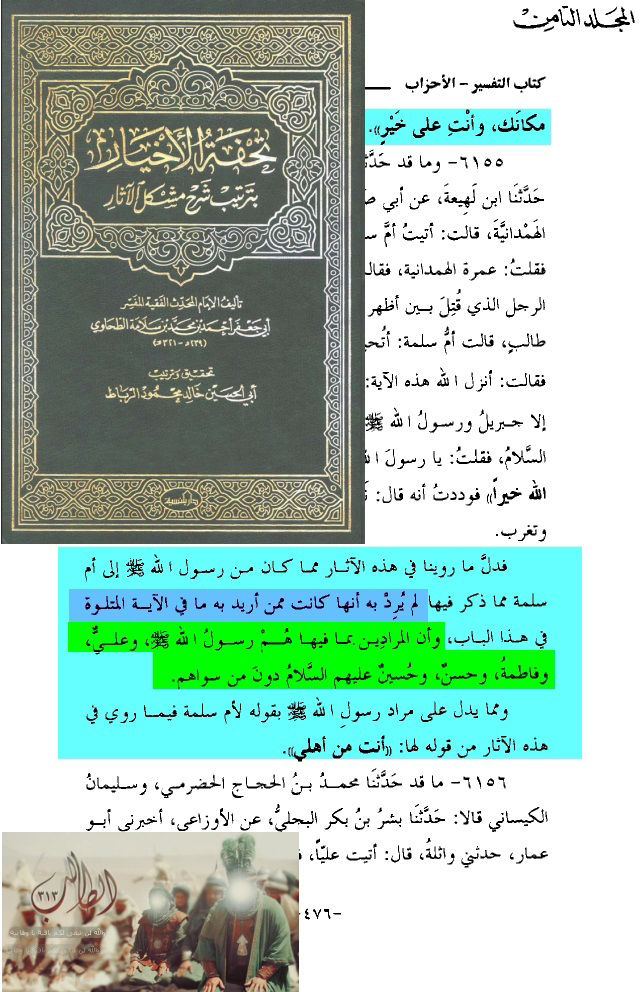 المجلد الثامن
كتاب التفسير - الأحزاب
مكانَك، وأنْتِ على خَيْرٍ».
٦١٥٥- وما قد حَدَّثَ
حَدَّثَنَا ابن لَهِيعةَ، عن أبي ص
الهَمْدانيَّةَ، قالت: أتيتُ أمَّ س
فقلتُ: عمرة الهمدانية، فقال
الرجل الذي قُتِلَ بـين أظهر
طالبٍ، قالت أمُّ سلمة: أتُحبـ
فقالت: أنزل الله هذه الآية:
إلا جـبريلُ ورسـولُ الله ﷺ
السَّلامُ، فقلتُ: يا رسولَ الله
الله خيراً» فوددتُ أنه قال: نَ
وتغرب.
تحفة الأخيار
بترتيب شرح مشكل الآثار
تأليف الإمام المحدث الفقيه المفسر
أبي جعفر أحمد بن محمد بن سلامة الطحاوي
(٢٣٩هـ-٣٢١هـ)
تحقيق وترتيب
أبي الحسين خالد محمود الرباط
دار بلنسية
فدلَّ ما روينا في هذه الآثار مما كـان مـن رسـول الله ﷺ إلى أم
سلمة مما ذكر فيها لم يُرِدْ به أنها كانت ممن أريد به ما في الآية المتلوة
في هـذا الباب، وأن المرادِيـن بمـا فيهـا هُـمْ رسـولُ الله ﷺ، وعلـيٌّ،
وفاطمةُ، وحسنٌ، وحُسينٌ عليهم السَّلامُ دونَ من سواهم.
ومما يدل على مراد رسولِ الله ﷺ بقوله لأم سلمة فيمـا روي في
هذه الآثار من قوله لها: «أنت من أهلي».
٦١٥٦- ما قد حَدَّثَنَا محمدُ بـنُ الحجاج الحضرمـي، وسـليمانُ
الكيساني قالا: حَدَّثَنَا بشرُ بنُ بكر البجليُّ، عن الأوزاعي، أخبرني أبـو
عمار، حدثني واثلةُ، قال: أتيت عليّاً، فـ
الطالب
٣١٣
-٤٧٦-